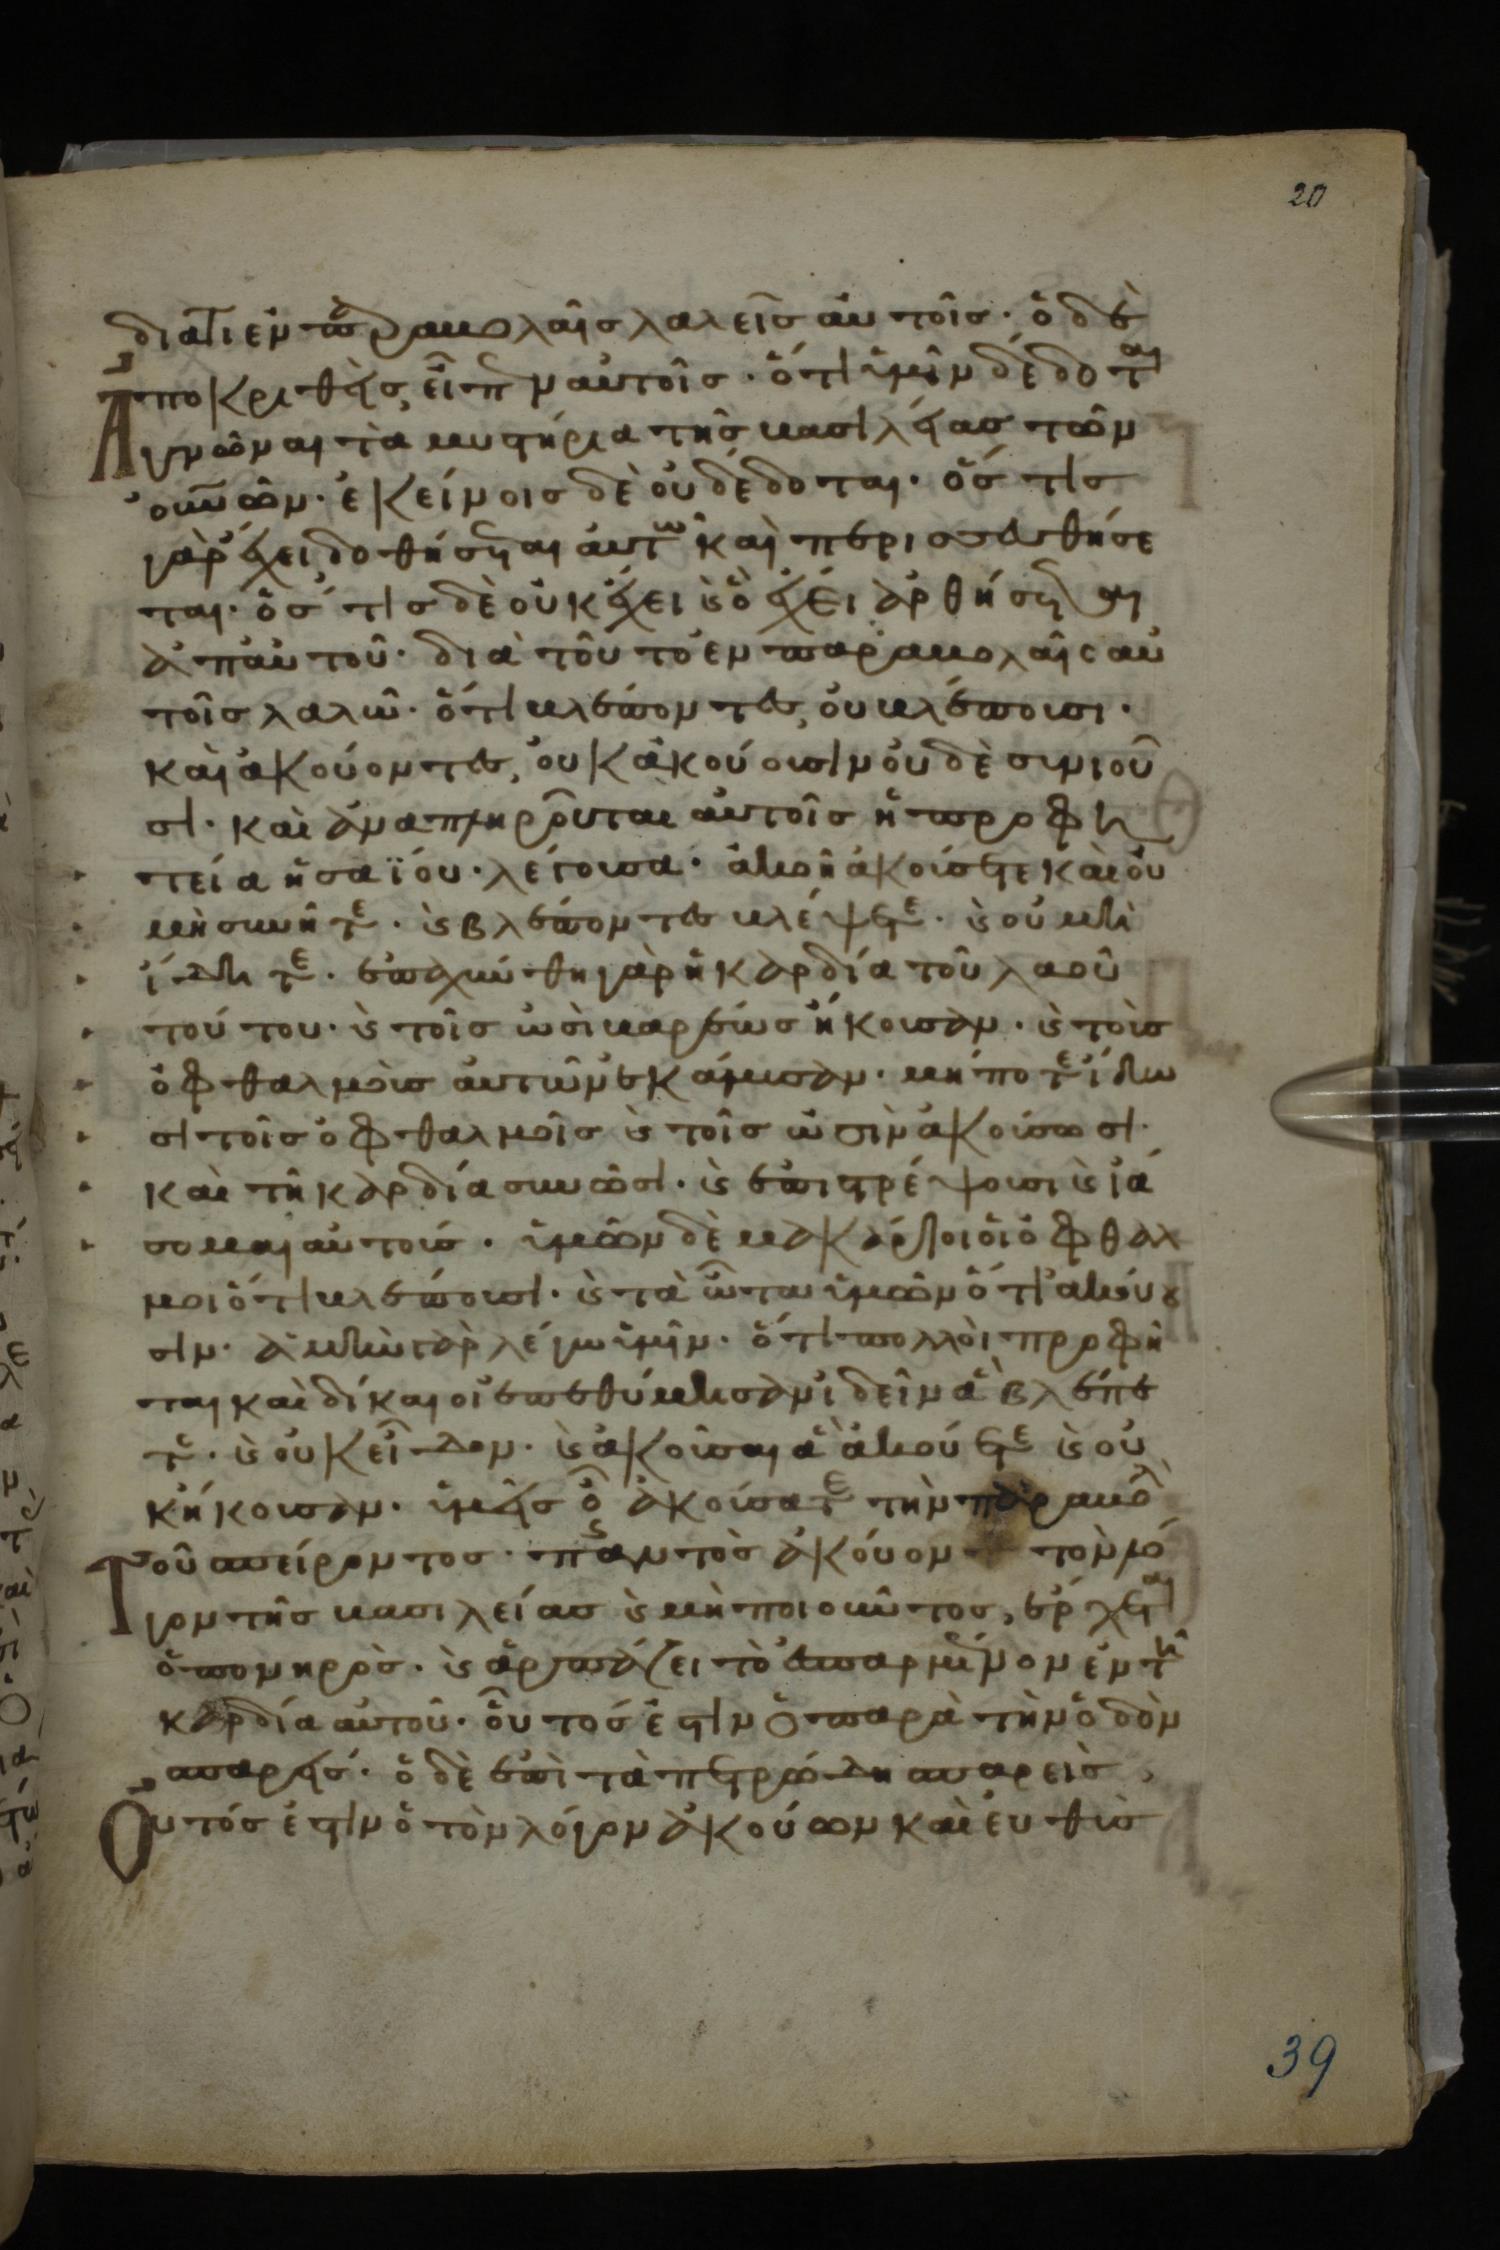 20
διατί ἐν παραβολαῖς λαλεῖς αὐτοῖς· ὁ δὲ
Ἀποκριθεὶς, εἶπεν αὐτοῖς· ὅτι ὑμῖν δέδοται
γνῶναι τὰ μυστήρια τῆς βασιλείας τῶν
οὐνῶν· ἐκείνοις δὲ οὐ δέδοται· ὅς τις
γὰρ ἔχει δοθήσεται αὐτῶ καὶ περισσευθήσε
ται· ὅς τις δὲ οὐκ ἔχει καὶ ὃ ἔχει ἀρθήσεται
ἀπ' αὐτοῦ· διὰ τοῦτο ἐν παραβολαῖς αὐ
τοῖς λαλῶ· ὅτι βλέποντες, οὐ βλέπουσι·
καὶ ἀκούοντες, οὐκ ἀκούουσιν οὐδὲ συνιοῦ
σι· καὶ ἀναπληροῦται αὐτοῖς ἡ προφη
τεία ἡσαΐου· λέγουσα· ἀκοῆ ἀκούσετε καὶ οὐ
μὴ συνῆτε· καὶ βλέποντες βλέψετε· καὶ οὐ μὴ
ἴδητε· ἐπαχύνθη γὰρ ἡ καρδία τοῦ λαοῦ
τούτου· καὶ τοῖς ὠσὶ βαρέως ἤκουσαν· καὶ τοὺς
ὀφθαλμοὺς αὐτῶν ἐκάμυσαν· μήποτε ἴδω
σι τοῖς ὀφθαλμοῖς καὶ τοῖς ὠσὶν ἀκούσωσι·
καὶ τῆ καρδία συνῶσι· καὶ ἐπιστρέψουσι καὶ ἰά
σομαι αὐτούς· ὑμῶν δὲ μακάριοι οἱ ὀφθαλ
μοὶ ὅτι βλέπουσι· καὶ τὰ ὦτα ὑμῶν ὅτι ἀκούου
σιν· ἀμὴν γὰρ λέγω ὑμῖν· ὅτι πολλοὶ προφῆ
ται καὶ δίκαιοι ἐπεθύμησαν ἰδεῖν ἃ βλέπε
τε· καὶ οὐκ εἶδον· καὶ ἀκοῦσαι ἃ ἀκούετε καὶ οὐ
κ ἤκουσαν· ὑμεῖς οὖν ἀκούσατε τὴν παραβολὴν
Τοῦ σπείροντος· παντὸς ἀκούοντος τὸν λό
γον τῆς βασιλείας καὶ μὴ ποιοῦντος, ἔρχεται
ὁ πονηρὸς· καὶ ἁρπάζει τὸ ἐσπαρμένον ἐν τῆ
καρδία αὐτοῦ· οὗτός ἐστιν ὁ παρὰ τὴν ὁδὸν
σπαρείς· ὁ δὲ ἐπὶ τὰ πετρώδη σπαρεὶς,
Οὗτός ἐστιν ὁ τὸν λόγον ἀκούων καὶ εὐθὺς
39